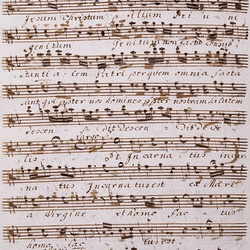 Jesum Christum filium Dei uni
genitum genitum non factum consub
stanti a lem Patri per quem omnia facta
sunt qui propter nos homines propter nostram salutem
descen dit descen dit de
lis Et Incarna tus in
na tus Incarnatus est ex Mari
a Virgine et homo fac tus
est